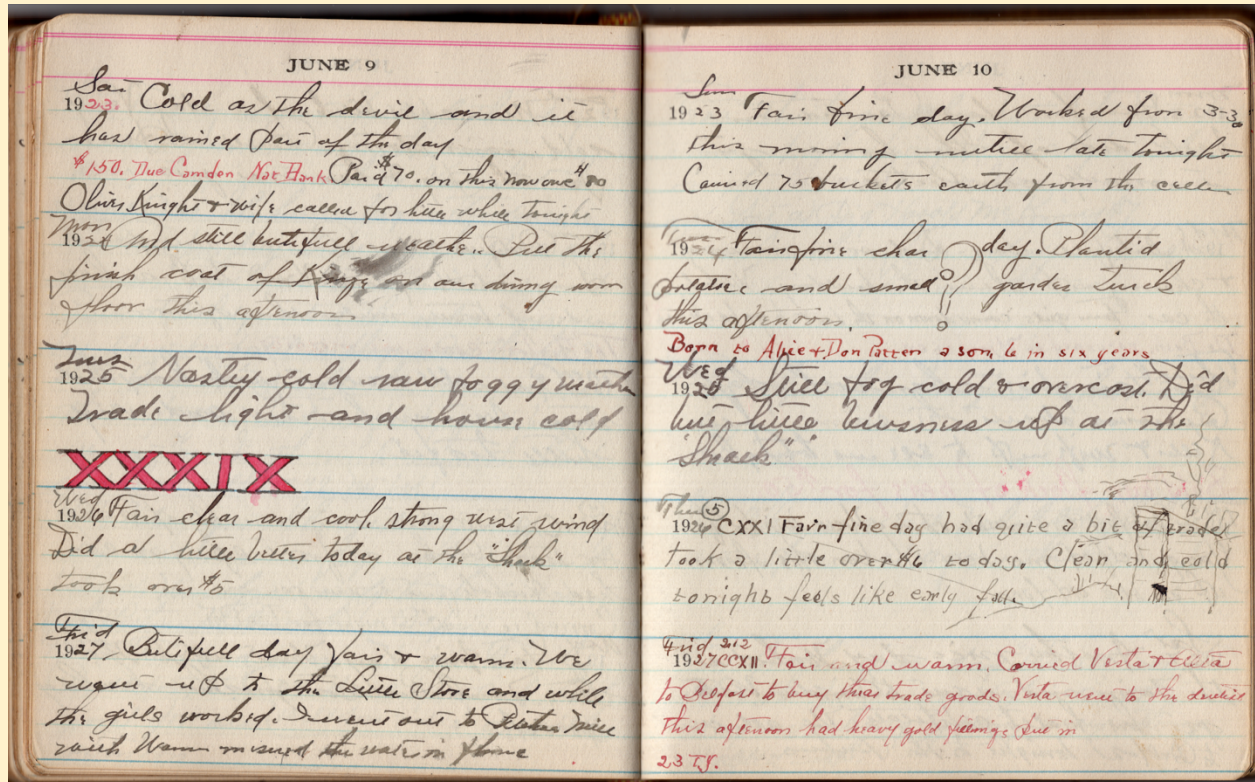 JUNE 9
Sat
1923. Cold as the devil and it
has rained part of the day
$150. Due Camden Nat Bank Paid $70. on this now owe $80
Oliver Knight & wife called for little while tonight
Mon
1924 And still butifull weather. Put the
finish coat of on our dining room
floor this afternoon
Tues
1925 Nastey cold raw foggy weather
Trade light and house cold
XXXIX
Wed
1926 Fair clear and cool, strong west wind
Did a little better today at the "Shack"
took over $5
Frid
1927, Butifull day fair & warm. We
went up to the Little Store and while
the girls worked. I went out to mill
with mesured the water in flome
JUNE 10
Sun
1923 Fair fine day. Worked from 3-30
this morning untill late tonight
Carried 75 buckets earth from the celler
Tues
1924 Fair fine clear day. Plantid
potatoes and small garden truck
this afternoon.
Born to Alice & Don Patten a son, 6 in six years
Wed
1925 Still fog cold & overcast. Did
but little busness up at the
"Shack"
Thur 5
1926 CXXI Fair fine day had quite a bit of trade
took a little over $6 today. Clear and cold
tonight feels like early fall.
Frid 212
1927 CCXII. Fair and warm. Carried Vesta &
to Belfast to buy thier trade goods. Vesta went to the dentist
this afternoon had heavy gold fillings put in
23